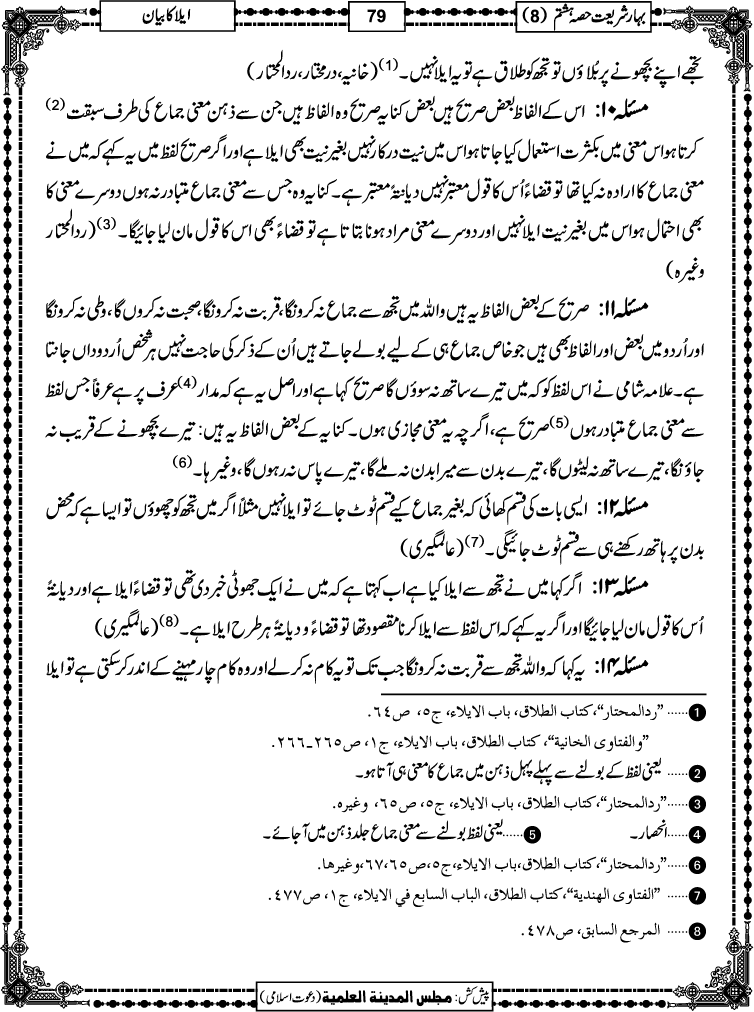 بہارِ شریعت حصہ ہشتم (8)
79
ایلا کا بیان
تجھے اپنے بچھونے پر بُلاؤں تو تجھ کو طلاق ہے تو یہ ایلا نہیں۔(1) (خانیہ، درمختار، ردالمحتار)
مسئلہ ۱۰: اس کے الفاظ بعض صریح ہیں بعض کنایہ صریح وہ الفاظ ہیں جن سے ذہن معنی جماع کی طرف سبقت(2)
کرتا ہو اس معنی میں بکثرت استعمال کیا جاتا ہو اس میں نیت درکار نہیں بغیر نیت بھی ایلا ہے اور اگر صریح لفظ میں یہ کہے کہ میں نے
معنی جماع کا ارادہ نہ کیا تھا تو قضاءً اُس کا قول معتبر نہیں دیانۃً معتبر ہے۔ کنایہ وہ جس سے معنی جماع متبادر نہ ہوں دوسرے معنی کا
بھی احتمال ہو اس میں بغیر نیت ایلا نہیں اور دوسرے معنی مراد ہونا بتاتا ہے تو قضاءً بھی اس کا قول مان لیا جائیگا۔(3) (ردالمحتار
وغیرہ)
مسئلہ ۱۱: صریح کے بعض الفاظ یہ ہیں واللہ میں تجھ سے جماع نہ کرونگا، قربت نہ کرونگا، صحبت نہ کروں گا، وطی نہ کرونگا
اور اُردو میں بعض اور الفاظ بھی ہیں جو خاص جماع ہی کے لیے بولے جاتے ہیں اُن کے ذکر کی حاجت نہیں ہر شخص اُردو داں جانتا
ہے۔ علامہ شامی نے اس لفظ کو کہ میں تیرے ساتھ نہ سوؤں گا صریح کہا ہے اور اصل یہ ہے کہ مدار(4) عرف پر ہے عرفاً جس لفظ
سے معنی جماع متبادر ہوں(5) صریح ہے، اگرچہ یہ معنی مجازی ہوں۔ کنایہ کے بعض الفاظ یہ ہیں: تیرے بچھونے کے قریب نہ
جاؤنگا، تیرے ساتھ نہ لیٹوں گا، تیرے بدن سے میرا بدن نہ ملے گا، تیرے پاس نہ رہوں گا، وغیرہا۔(6)
مسئلہ ۱۲: ایسی بات کی قسم کھائی کہ بغیر جماع کیے قسم ٹوٹ جائے تو ایلا نہیں مثلاً اگر میں تجھ کو چھوؤں تو ایسا ہے کہ محض
بدن پر ہاتھ رکھنے ہی سے قسم ٹوٹ جائیگی۔(7) (عالمگیری)
مسئلہ ۱۳: اگر کہا میں نے تجھ سے ایلا کیا ہے اب کہتا ہے کہ میں نے ایک جھوٹی خبر دی تھی تو قضاءً ایلا ہے اور دیانۃً
اُس کا قول مان لیا جائیگا اور اگر یہ کہے کہ اس لفظ سے ایلا کرنا مقصود تھا تو قضاءً و دیانۃً ہر طرح ایلا ہے۔(8) (عالمگیری)
مسئلہ ۱۴: یہ کہا کہ واللہ تجھ سے قربت نہ کرونگا جب تک تو یہ کام نہ کر لے اور وہ کام چار مہینے کے اندر کر سکتی ہے تو ایلا
1 ...... ”ردالمحتار“، کتاب الطلاق، باب الایلاء، ج٥، ص٦٤.
”والفتاوی الخانیة“، کتاب الطلاق، باب الایلاء، ج١، ص٢٦٥۔٢٦٦.
2 ...... یعنی لفظ کے بولنے سے پہلے پہل ذہن میں جماع کا معنی ہی آتا ہو۔
3 ...... ”ردالمحتار“، کتاب الطلاق، باب الایلاء، ج٥، ص٦٥، وغیرہ.
4 ...... انحصار۔ 5 ...... یعنی لفظ بولنے سے معنی جماع جلد ذہن میں آجائے۔
6 ...... ”ردالمحتار“، کتاب الطلاق، باب الایلاء، ج٥، ص٦٥، ٦٧، وغیرہا.
7 ...... ”الفتاوی الھندیة“، کتاب الطلاق، الباب السابع في الایلاء، ج١، ص٤٧٧.
8 ...... المرجع السابق، ص٤٧٨.
پیش کش: مجلس المدینة العلمیة (دعوت اسلامی)